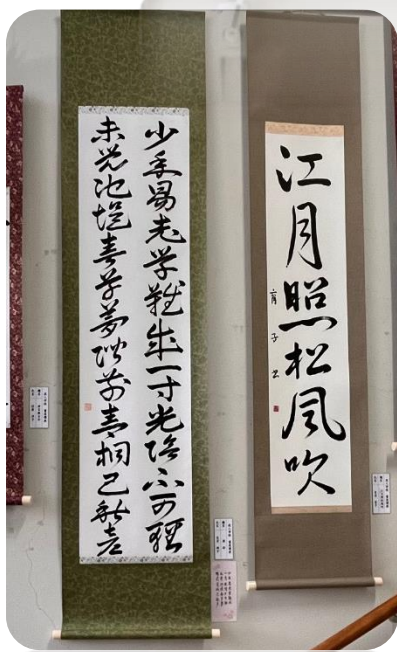 江月照松風吹
育子書
少年易老学難成一寸光陰不可軽
未覚池塘春草夢階前青桐已秋声